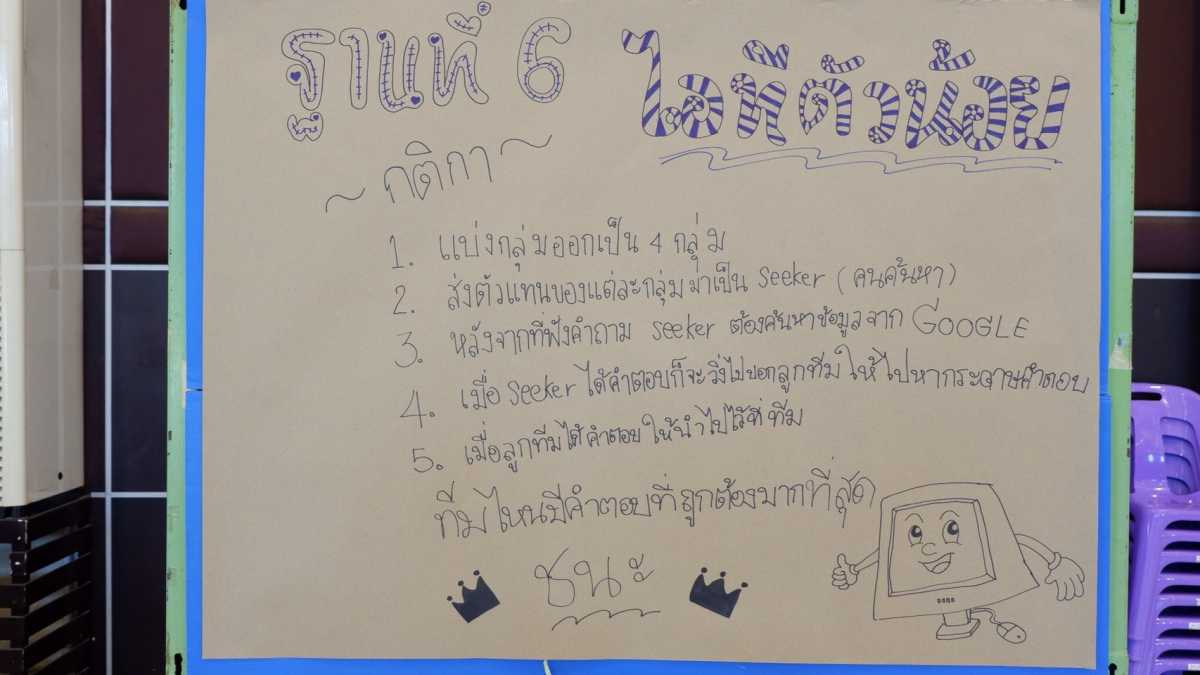 ฐานที่ 6 ไอทีตัวน้อย
~ กติกา ~
1. แบ่งกลุ่มออกเป็น 4 กลุ่ม
2. ส่งตัวแทนของแต่ละกลุ่มมาเป็น Seeker (คนค้นหา)
3. หลังจากที่ฟังคำถาม seeker ต้องค้นหาข้อมูลจาก GOOGLE
4. เมื่อ Seeker ได้คำตอบก็จะวิ่งไปบอกลูกทีมให้ไปหากระดาษคำตอบ
5. เมื่อลูกทีมได้คำตอบให้นำไปไว้ที่ทีม
ทีมไหนมีคำตอบที่ถูกต้องมากที่สุด
ชนะ